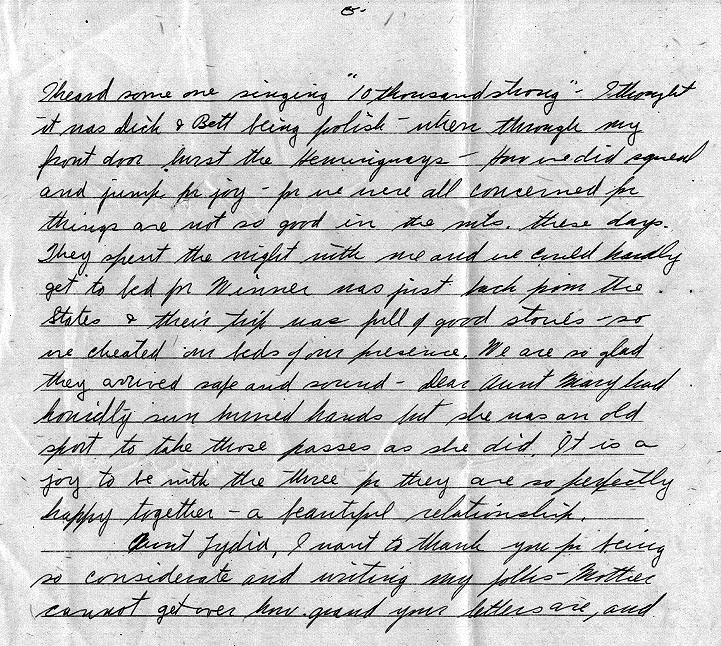 I heard some one singing "10 thousand strong" - I thought
it was Dick & Bett being foolish - when through my
front door burst the Heminguays - How we did squeal
and jump for joy - for we were all concerned for
things are not so good in the mts. these days.
They spent the night with me and we could hardly
get to bed for Winner was just back from the
States & their trip was full of good stories - so
we cheated our beds of our presence. We are so glad
they arrived safe and sound - Dear Aunt Mary had
horridly sun burned hands but she was an old
sport to take those passes as she did. It is a
joy to be with the three for they are so perfectly
happy together - a beautiful relationship.
Aunt Lydia, I want to thank you for being
so considerate and writing my folks - Mother
cannot get over how grand your letters are, and